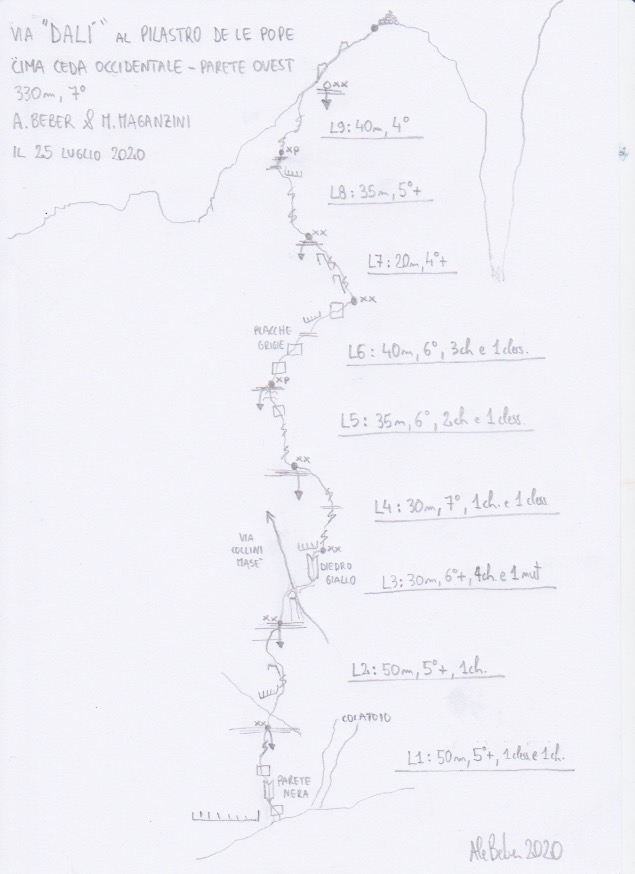 VIA "DALÍ" AL PILASTRO DE LE POPE
CIMA CEDA OCCIDENTALE - PARETE OVEST
330m, 7°
A. BEBER & M. MAGANZINI
IL 25 LUGLIO 2020
xx
L9: 40m, 4°
xp
L8: 35m, 5°+
xx
L7: 20m, 4°+
xx
PLACCHE
GRIGIE
L6: 40m, 6°, 3ch e 1 cless.
xp
L5: 35m, 6°, 2ch e 1 cless.
xx
L4: 30m, 7°, 1ch. e 1 cless
VIA
COLLINI
MASE'
xx
DIEDRO
GIALLO
L3: 30m, 6°+, 4ch. e 1 nut
xx
L2: 50m, 5°+, 1ch.
xx
COLATOIO
L1: 50m, 5°+, 1 cless e 1 ch.
PARETE
NERA
Ale Beber 2020